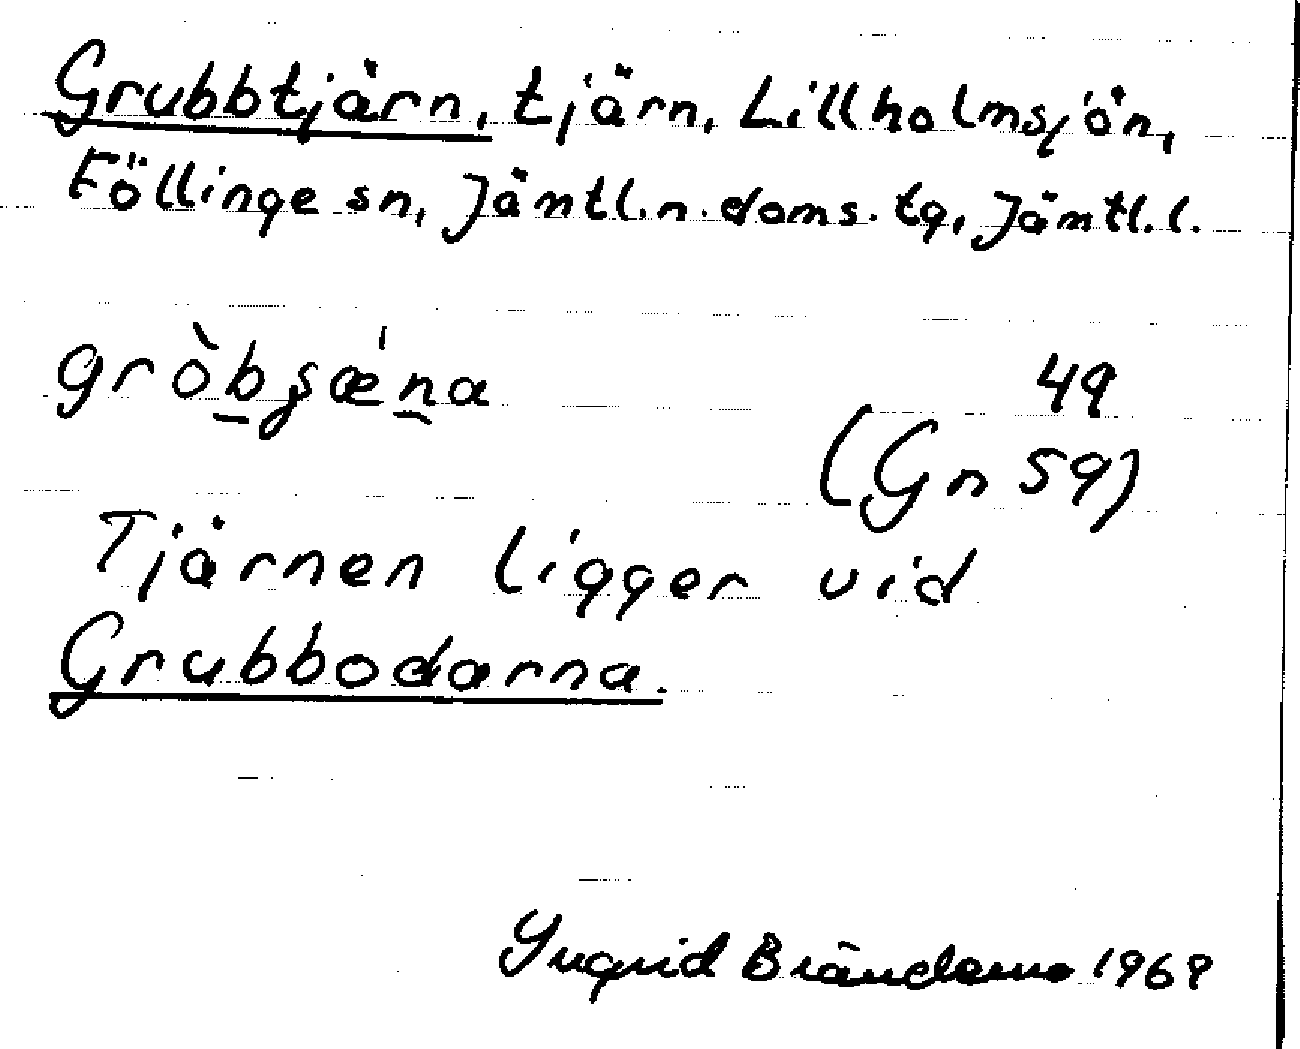 Grubbtjärn, tjärn, Lillholmsjön,
Föllinge sn, Jämtl. n. doms. tg, Jämtl. l.
49
(Gn 59)
Tjärnen ligger vid
Grubbodarna.
Ingrid Brändemo 1968